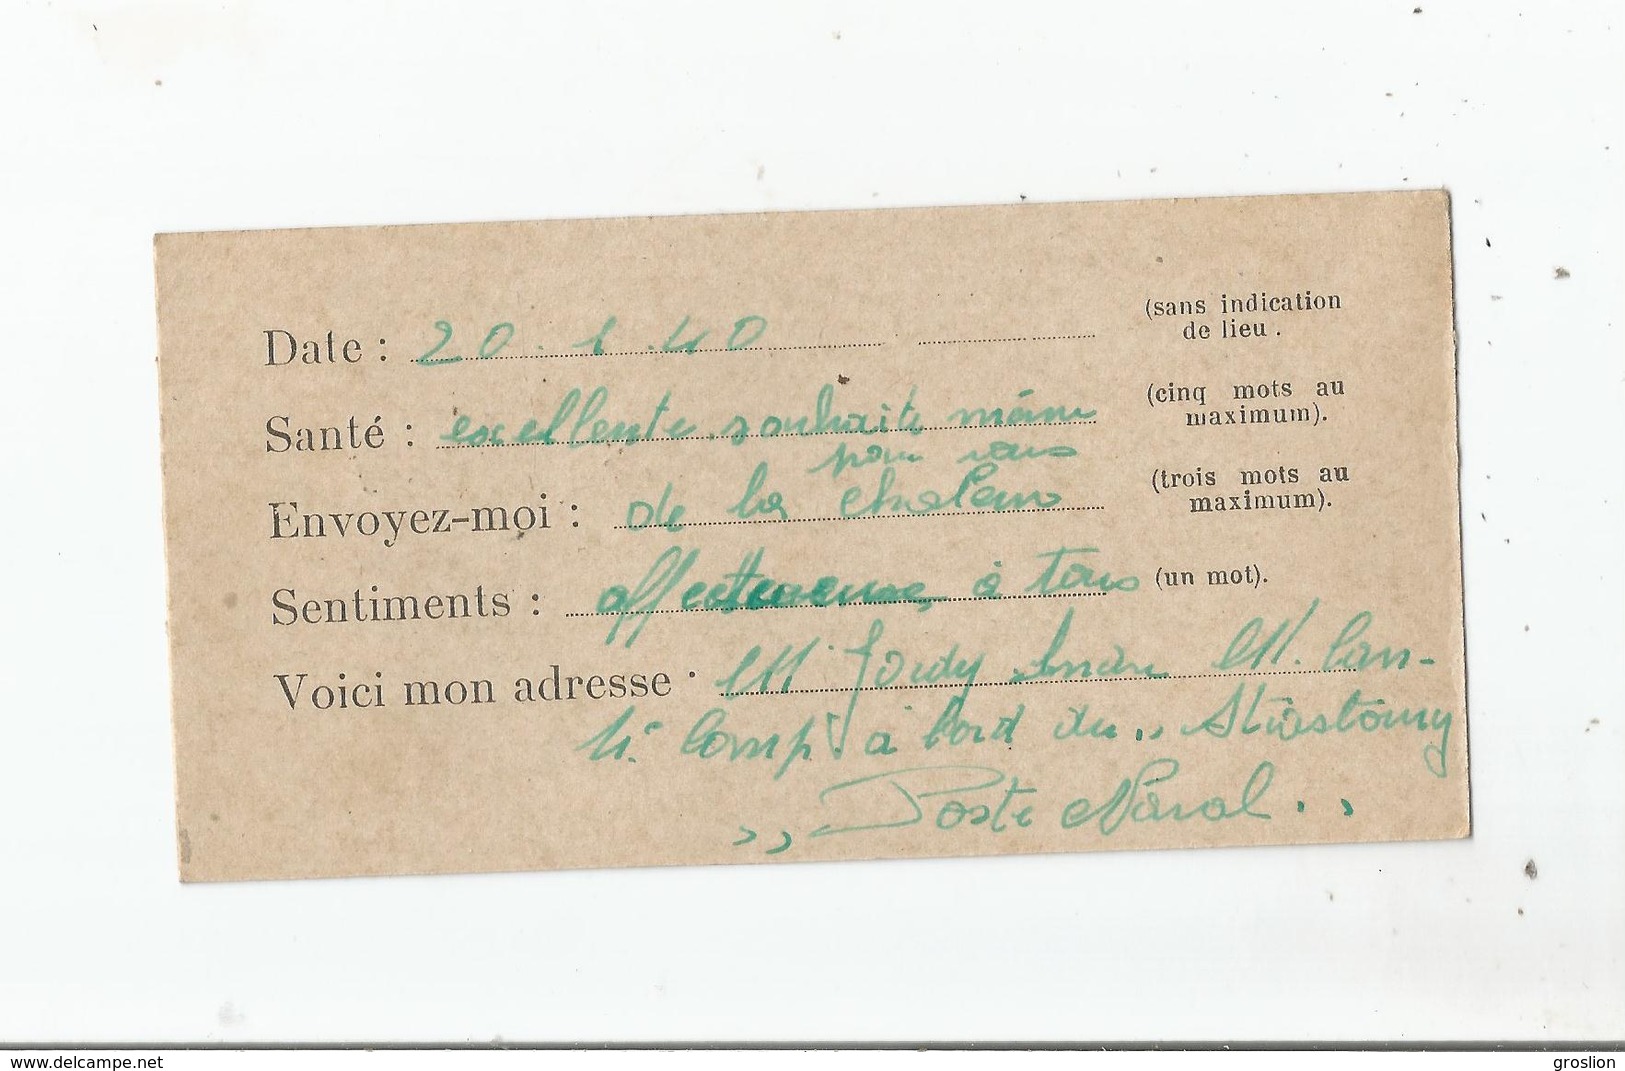 Date : 20.1.40 (sans indication
de lieu .
Santé : excellente souhaite même (cinq mots au
maximum).
pour vous
Envoyez-moi : de la chaleur (trois mots au
maximum).
Sentiments : affectueuse à tous (un mot).
Voici mon adresse : M. Can-
4e Comp. à bord du ,, Strasbourg
,, Poste Naval . ,
www.delcampe.net
groslion